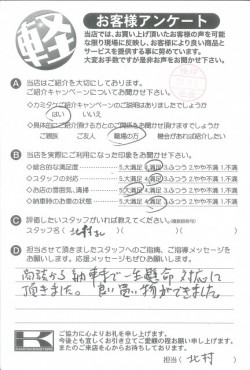 軽
お客様アンケート
当店では、お買い上げ頂いたお客様の声を可能
な限り現場に反映し、お客様により良い商品と
サービスを提供する事に努めています。
大変お手数ですが是非お声をお聞かせ下さい。
A 当店はご紹介を大切にしております。
ご紹介キャンペーンについてお聞かせ下さい。
カミタケご紹介キャンペーンのご説明はありましたでしょうか
はい いいえ
具体的にご紹介頂ける方とのご関係をお聞かせ頂けますでしょうか
ご親族 ご友人 職場の方 機会があれば紹介したい
B 当店を実際にご利用になった印象をお聞かせ下さい。
総合的な満足度 5.大満足 4.満足 3.ふつう 2.やや不満 1.不満
スタッフの対応 5.大満足 4.満足 3.ふつう 2.やや不満 1.不満
お店の雰囲気、清掃 5.大満足 4.満足 3.ふつう 2.やや不満 1.不満
納車時のお車の状態 5.大満足 4.満足 3.ふつう 2.やや不満 1.不満
C 評価したいスタッフがいれば教えてください。
スタッフ名( 北村 )( )( )
D 担当させて頂きましたスタッフへのご指摘、ご指導メッセージを
お願いします。応援メッセージもぜひお願いします。
商談から納車まで一生懸命対応して
頂きました。良い買い物ができました
K
ご協力に心よりお礼を申し上げます。
今後とも宜しくお引き立てご愛顧の程お願い申し上げます。
またのご来店を心からお待ちしております。
担当( 北村 )